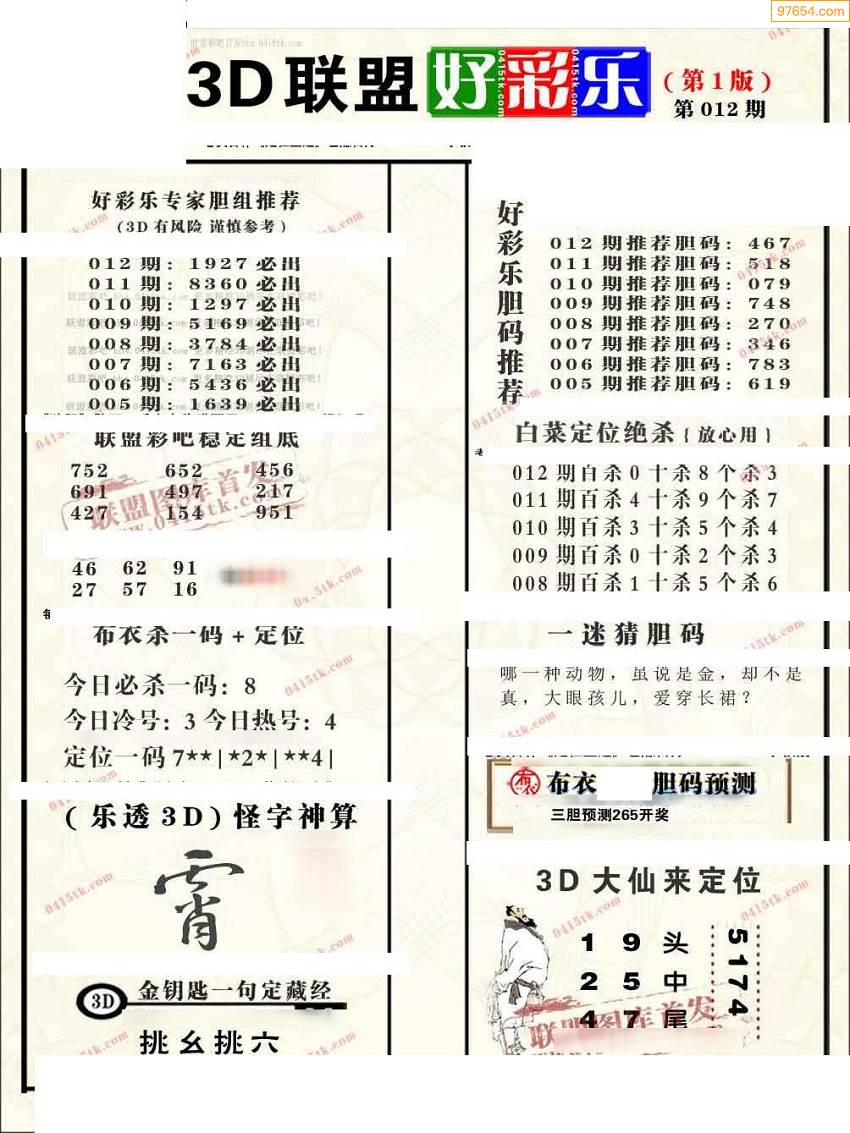 97654.com
3D联盟好彩乐
(第1版)
第012期
好彩乐专家胆组推荐
(3D有风险 谨慎参考)
012期: 1927必出
011期: 8360必出
010期: 1297必出
009期: 5169必出
008期: 3784必出
007期: 7163必出
006期: 5436必出
005期: 1639必出
联盟彩吧稳定组底
752 652 456
691 497 217
427 154 951
46 62 91
27 57 16
布衣杀一码+定位
今日必杀一码: 8
今日冷号: 3 今日热号: 4
定位一码 7**|*2*|**4|
(乐透3D)怪字神算
霄
3D 金钥匙一句定藏经
挑幺挑六
好彩乐胆码推荐
012期推荐胆码: 467
011期推荐胆码: 518
010期推荐胆码: 079
009期推荐胆码: 748
008期推荐胆码: 270
007期推荐胆码: 346
006期推荐胆码: 783
005期推荐胆码: 619
白菜定位绝杀{放心用}
012期百杀0十杀8个杀3
011期百杀4十杀9个杀7
010期百杀3十杀5个杀4
009期百杀0十杀2个杀3
008期百杀1十杀5个杀6
一迷猜胆码
哪一种动物，虽说是金，却不是
真，大眼孩儿，爱穿长裙？
布衣 胆码预测
三胆预测265开奖
3D大仙来定位
1 9 头
2 5 中
4 7 尾
5174
联盟图库首发
www.0415tk.com
联盟图库首发
0415tk.com